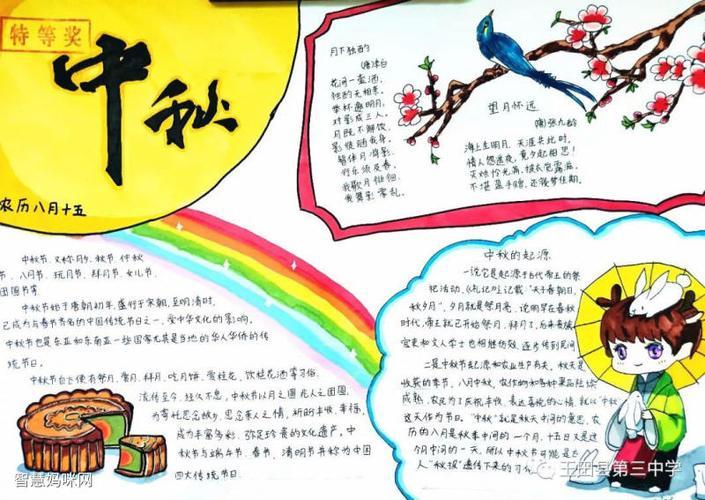 特等奖
中秋
农历八月十五
月下独酌
(唐)李白
花间一壶酒,
独酌无相亲。
举杯邀明月,
对影成三人。
月既不解饮,
影徒随我身。
暂伴月将影,
行乐须及春。
我歌月徘徊,
我舞影零乱。
望月怀远
张九龄
海上生明月,天涯共此时。
情人怨遥夜,竟夕起相思!
灭烛怜光满,披衣觉露滋。
不堪盈手赠,还寝梦佳期。
中秋节,又称月夕、秋节、仲秋
节、八月节、玩月节、拜月节、女儿节、
团圆节等
中秋节始于唐朝初年,盛行于宋朝,至明清时,
已成为与春节齐名的中国传统节日之一,受中华文化的影响,
中秋节也是东亚和东南亚一些国家尤其是当地的华人华侨的传
统节日。
中秋节自古便有祭月、赏月、拜月、吃月饼、赏桂花、饮桂花酒等习俗,
流传至今,经久不息,中秋节以月之圆兆人之团圆,
为寄托思念故乡,思念亲人之情,祈盼丰收、幸福,
成为丰富多彩、弥足珍贵的文化遗产,中
秋节与端午节、春节、清明节并称为中国
四大传统节日。
中秋的起源
一说它是起源于古代帝王的祭
祀活动。《礼记》上记载:"天子春朝日,
秋夕月",夕月就是祭月亮,说明早在春秋
时代,帝王就已开始祭月、拜月了,后来贵族
官吏和文人学士也相继仿效,逐步传到民间
二是中秋节起源和农业生产有关。秋天是
收获的季节。八月中秋,农作物和各种果品陆续
成熟,农民为了庆祝丰收,表达喜悦的心情,就以"中秋"
这天作为节日。"中秋"就是秋天中间的意思,农
历的八月是秋季中间的一个月,十五日又是这
个月中间的一天,所以中秋节可能是古
人"秋报"遗传下来的习俗
智慧妈咪网
玉田县第三中学